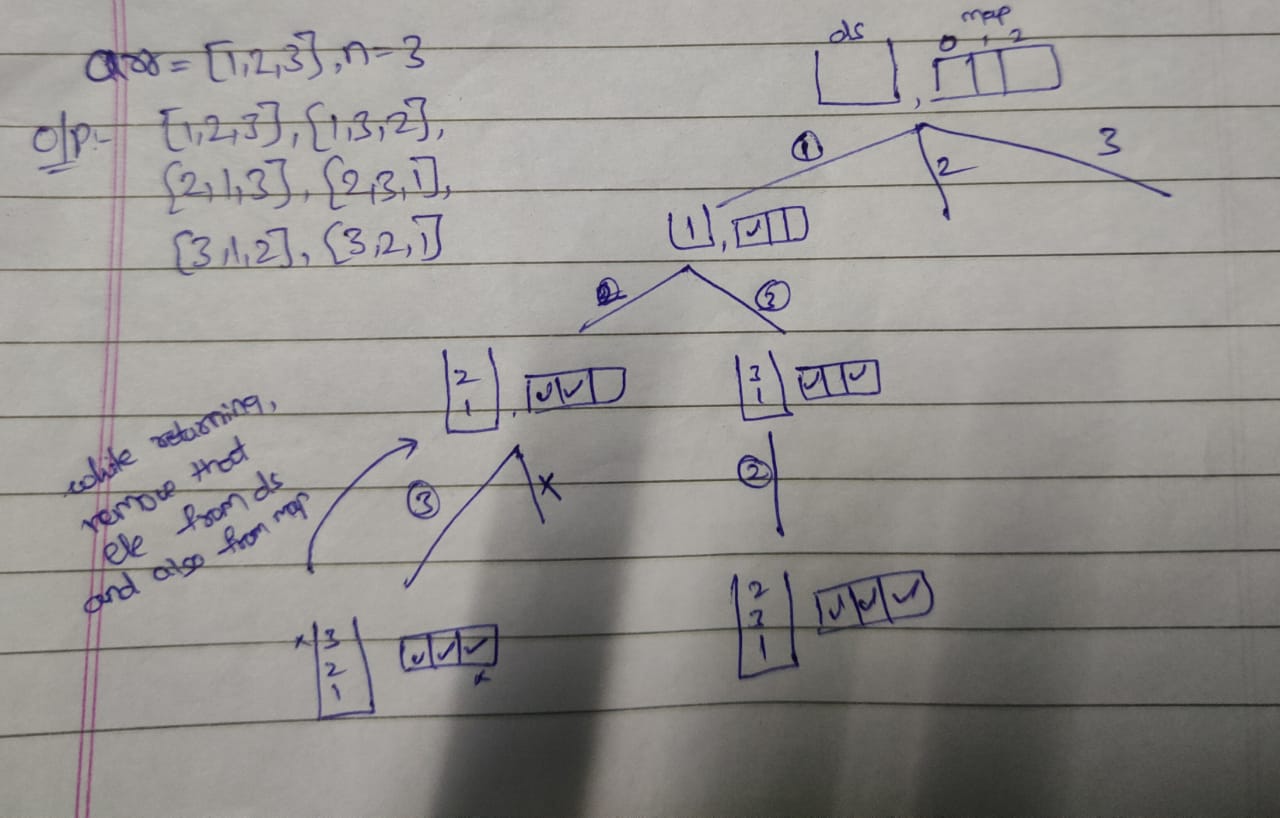 arr = [1,2,3], n=3
O/P:- [1,2,3], [1,3,2],
[2,1,3], [2,3,1],
[3,1,2], [3,2,1]
ds
map
0 1 2
1
2
3
1
2
3
2
1
3
1
while returning,
remove that
ele from ds
and also from map
3
x
2
x 3
2
1
x
2
3
1